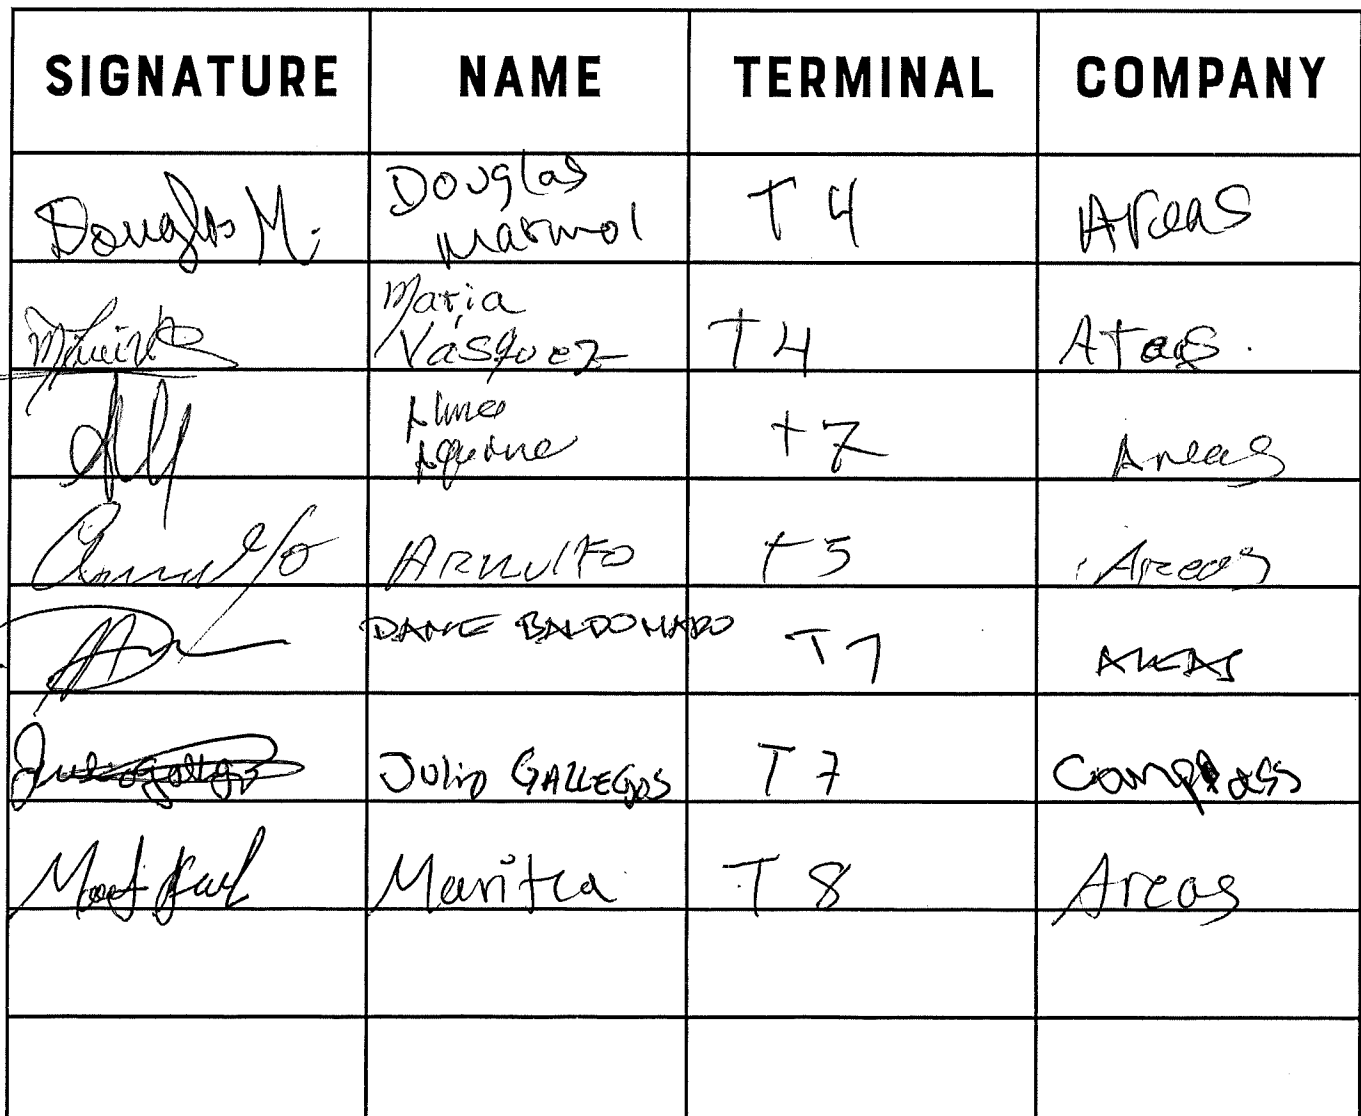 SIGNATURE NAME TERMINAL COMPANY
Douglas M. Douglas Marmol T 4 Areas
Maria Vásquez T4 Areas.
T7 Areas
Arnulfo ARNULFO T5 Areas
DANTE BALDOMADO T7 AREAS
Julio Gallegos JULIO GALLEGOS T 7 Compass
Maritza T 8 Areas